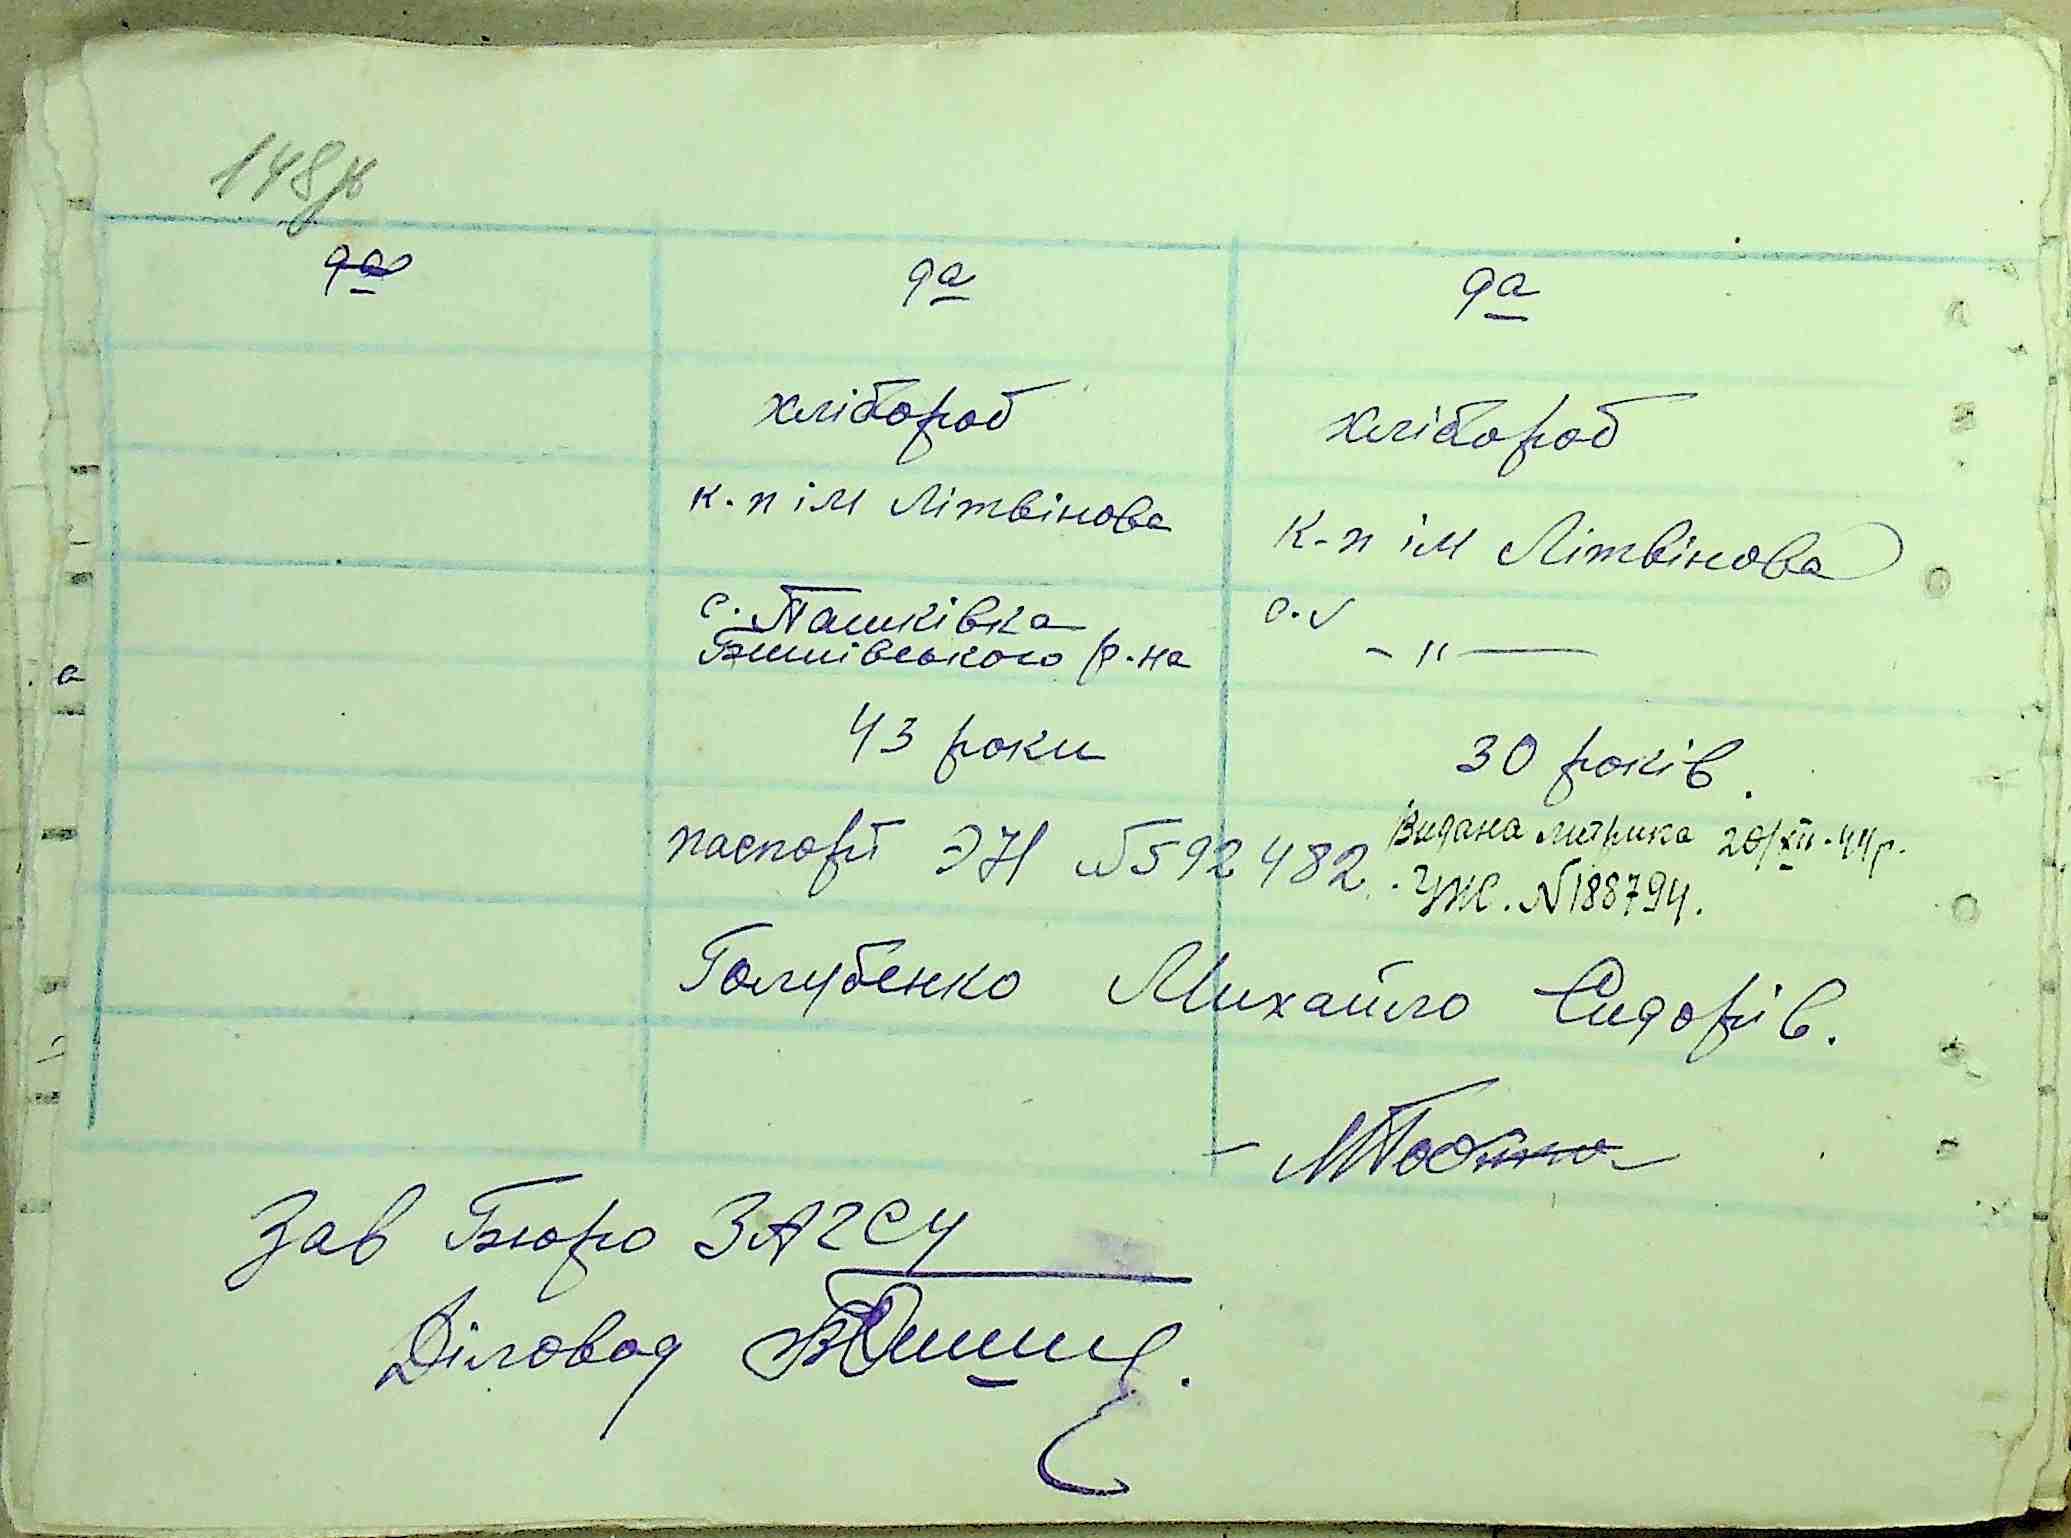 148
да да да
хлібороб хлібороб
к. п ім Літвінова к. п ім Літвінова
с. Пашківка с.
Бишівського р-на - " -
43 роки 30 років.
паспорт ЭН №592482. Видана митрика 20/XII-44р.
УЖ. №188794.
Голубенко Михайло Сидорів.
Зав Бюро ЗАГСУ
Діловод